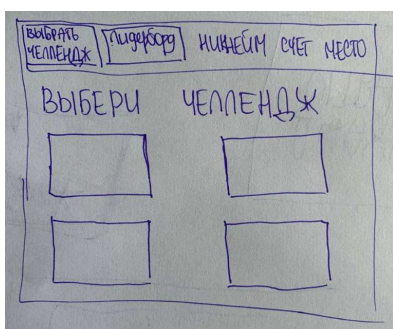 ВЫБРАТЬ
ЧЕЛЛЕНДЖ
Лидерборд
НИКНЕЙМ СЧЕТ МЕСТО
ВЫБЕРИ ЧЕЛЛЕНДЖ